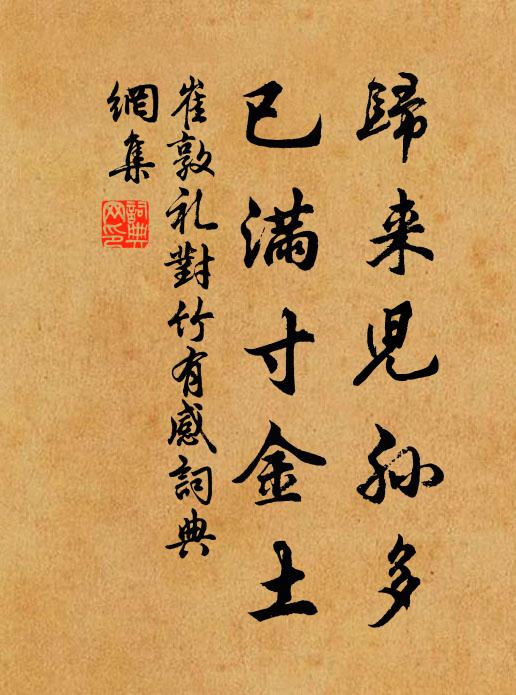 歸来児孫多
已滿寸金土
崔敦礼對竹有感詞典
網集
詞典
网印